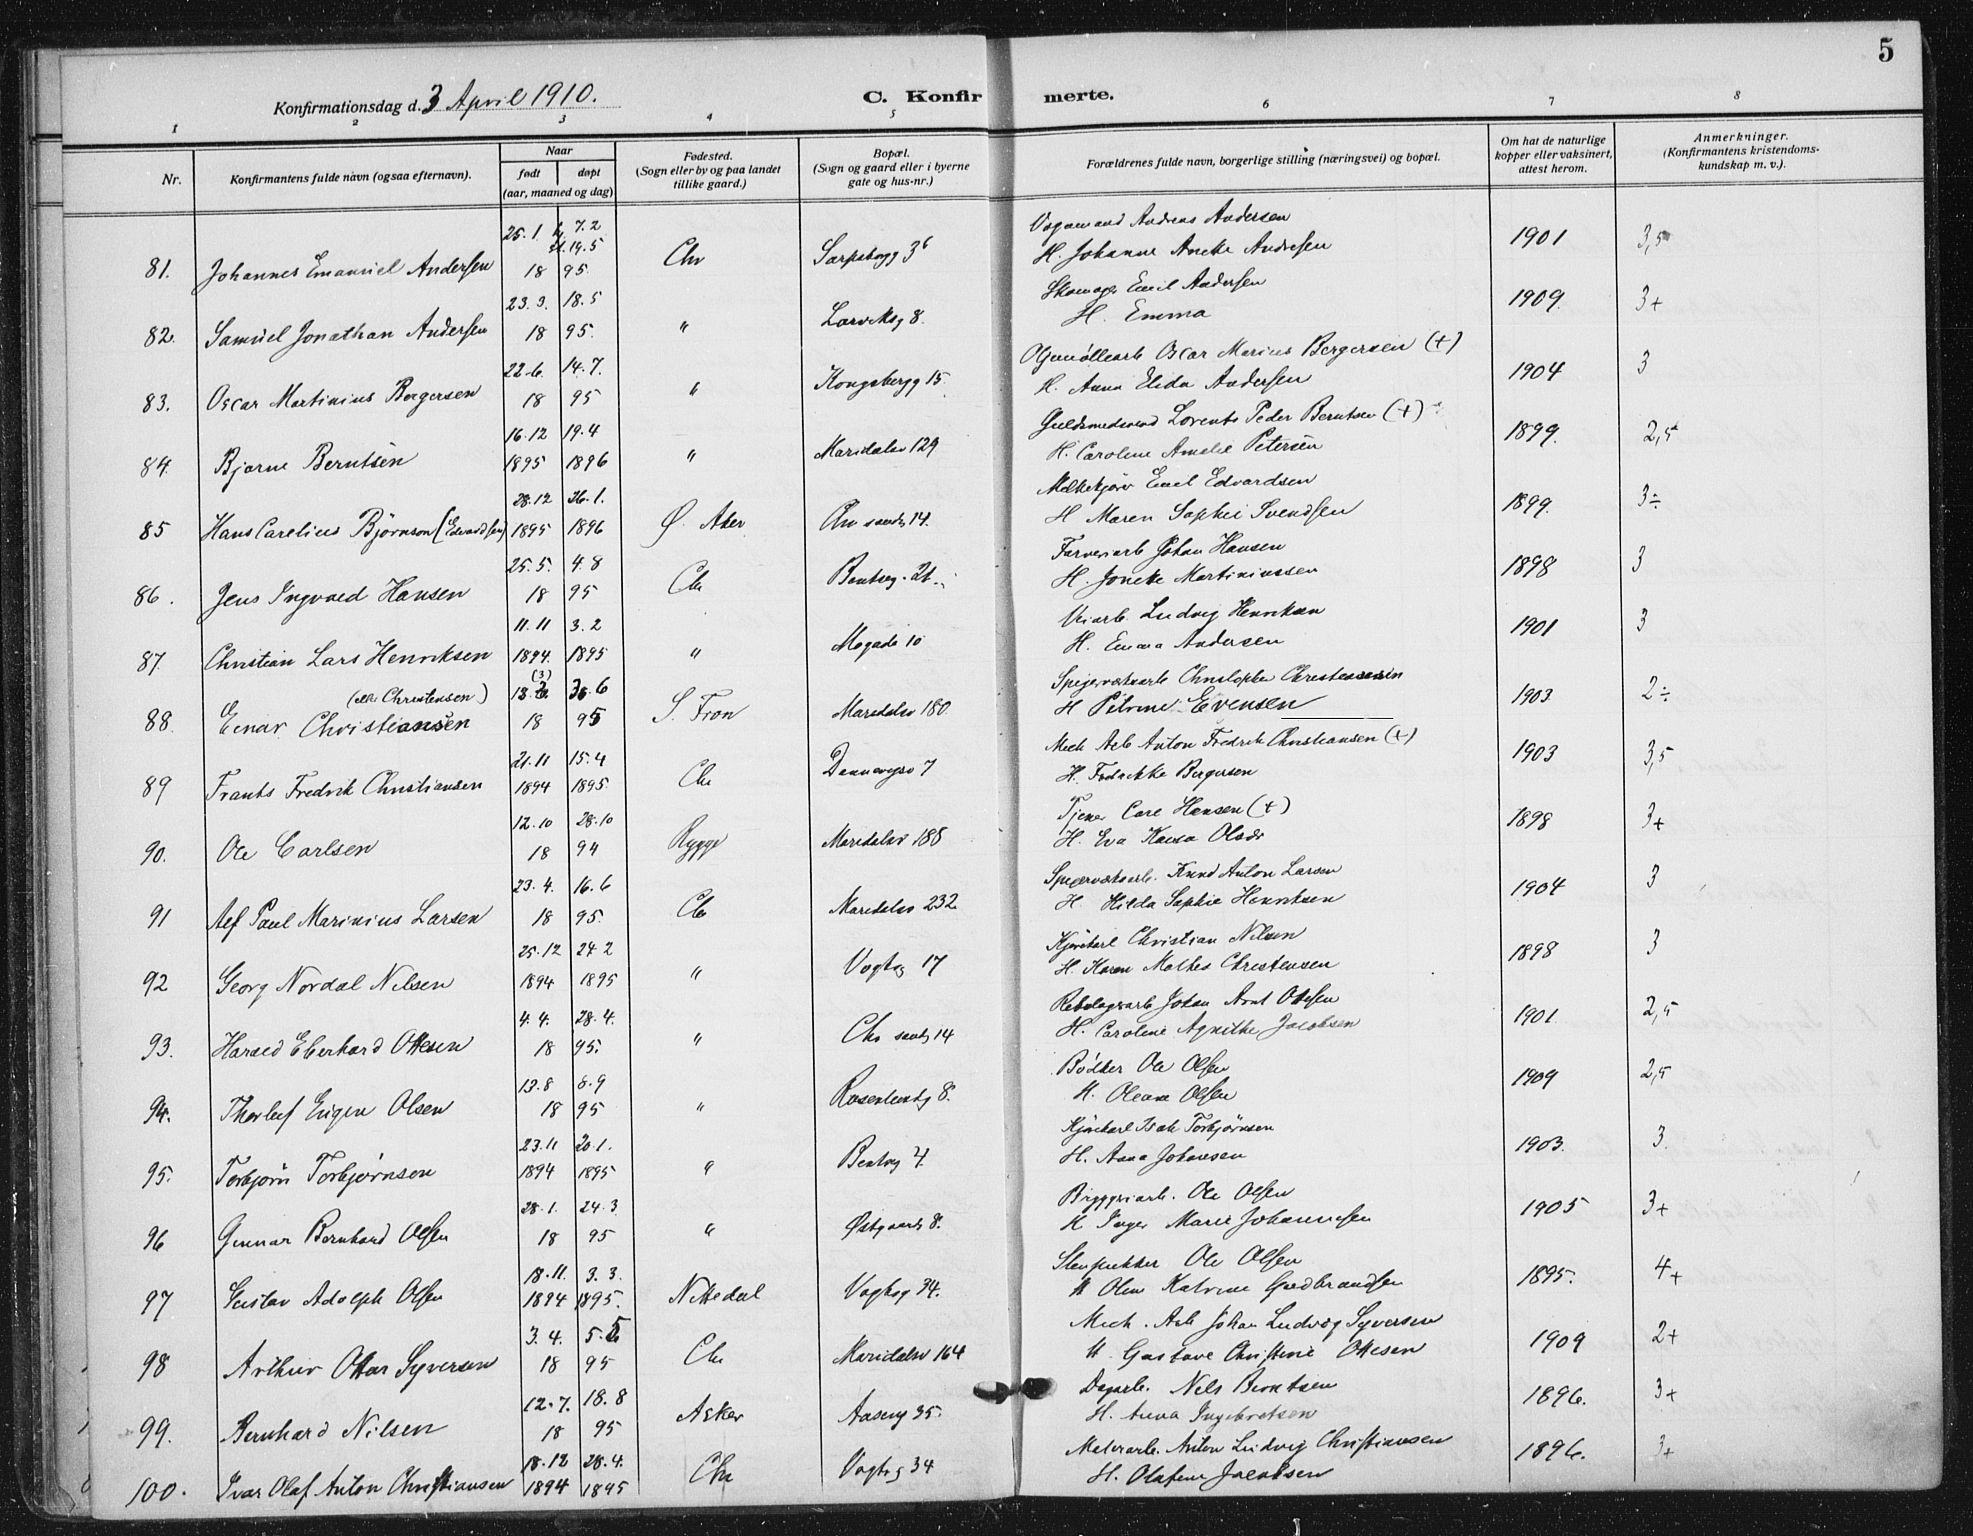 5
Konfirmationsdag d. 3 April 1910.
C. Konfirmerte.
1 2 3 4 5 6 7 8
Nr.
Konfirmantens fulde navn (ogsaa efternavn).
Naar
født døpt
(aar, maaned og dag)
Fødested.
(Sogn eller by og paa landet
tillike gaard.)
Bopæl.
(Sogn og gaard eller i byerne
gate og hus-nr.)
Forældrenes fulde navn, borgerlige stilling (næringsvei) og bopæl.
Om hat de naturlige
kopper eller vaksinert,
attest herom.
Anmerkninger.
(Konfirmantens kristendoms-
kundskap m. v.).
25.1 7.2 Andreas Andersen
19.5
81. Johannes Emanuel Andersen 18 95. Chr Sarpsbogg 36 H. Johanne Andersen 1901 3,5
23.3. 18.5 Emil Andersen
82. Samuel Jonathan Andersen 18 95. " Larviksg 8. H. Emma 1909. 3+
22.6. 14.7. Oscar Marius Bergersen (+)
83. Oscar Martinius Bergersen 18 95 " Kongsbergg 15. H. Anna Elida Andersen 1904 3
16.12 19.4 Guldsmedsvend Lorents Peder Berntsen (+)
84. Bjarne Berntsen 1895 1896 " Maridalsv 129 H. Caroline Amalie Petersen 1899. 2,5
28.12 26.1. Melkekjører Emil Edvardsen
85 Hans Carelius Bjørnson (Edvardsen) 1895 1896 Ø. Aker Chr sandg 14. H Maren Sophie Svendsen 1899. 3÷
25.5. 4.8 Farveriarb Johan Hansen
86. Jens Ingvard Hansen 18 95 Chr Bentseg. 21 H. Martiniussen 1898 3
11.11 3.2 Ludvig Henriksen
87. Christian Lars Henriksen 1894. 1895 " Mogade 10 H. Emma Andersen 1901 3
(eller Christensen) (3)
6 Spigerverksarb Christopher Christensen
88. Einar Christiansen 18 95 S. Fron Maridalsv 180. H Petrine Evensen 1903. 2÷
21.11 15.4 Mech Arb Anton Fredrik Christiansen (+)
89 Frants Fredrik Christiansen 1894 1895. Chr Dannevigsv 7 H. Fredrikke Bergersen 1903 3,5
12.10 28.10 Tjener Carl Hansen (+)
90. Ole Carlsen 18 94 Rygge Maridalsv 188 H. Eva Olsdr 1898 3+
23.4. 16.6 Spigerverksarb. Knud Anton Larsen
91 Alf Paul Marinius Larsen 18 95. Chr Maridalsv 232 H. Hilda Sophie Henriksen 1904 3
25.12 24.2 Kjørekarl Christian Nilsen
92 Georg Nordal Nilsen 1894 1895 " Vogtsg 17 H. Karen Mathea Christensen 1898 3
4.4. 28.4. Reberslagerarb Johan Arnt Ottesen
93. Harald Eberhard Ottesen 18 95. " Chr sandg 14 H. Caroline Agnethe Jacobsen 1901. 2,5
13.8 8.9 Bødker Ole Olsen
94. Thorleif Eugen Olsen 18 95 " Rosenlundg 8. H. Oleane Olsen 1909 2,5
23.11 20.1. Kjørekarl Isak Torbjørnsen
95. Torbjørn Torbjørnsen 1894 1895 " Bentseg 4. H. Anna Johansen 1903. 3.
28.1. 24.3 Bryggeriarb. Ole Olsen
96 Gunnar Bernhard Olsen 18 95 " Østgaardsg 8. H Inger Marie Johannesen 1905 3+
18.11. 3.3. Stenpukker Ole Olsen
97 Gustav Adolph Olsen 1894 1895. Nittedal Vogtsg 34. H Oline Katrine Gudbrandsen 1895. 4+
3.4. 5.5 Mech. Arb Johan Ludvig Syversen
98 Arthur Ottar Syversen 18 95 Chr Maridalsv 164 H. Gustave Christine Ottesen 1909 2+
12.7. 18.8 Dagarb. Nils Berntsen
99. Bernhard Nilsen 18 95 Asker Aaseng 35. H. Anna Ingebretsen 1896. 3+
18.12 28.4. Malerarb. Anton Ludvig Christiansen
100. Ivar Olaf Anton Christiansen 1894 1895 Chr Vogtsg 34 H. Olefine Jacobsen 1896. 3+